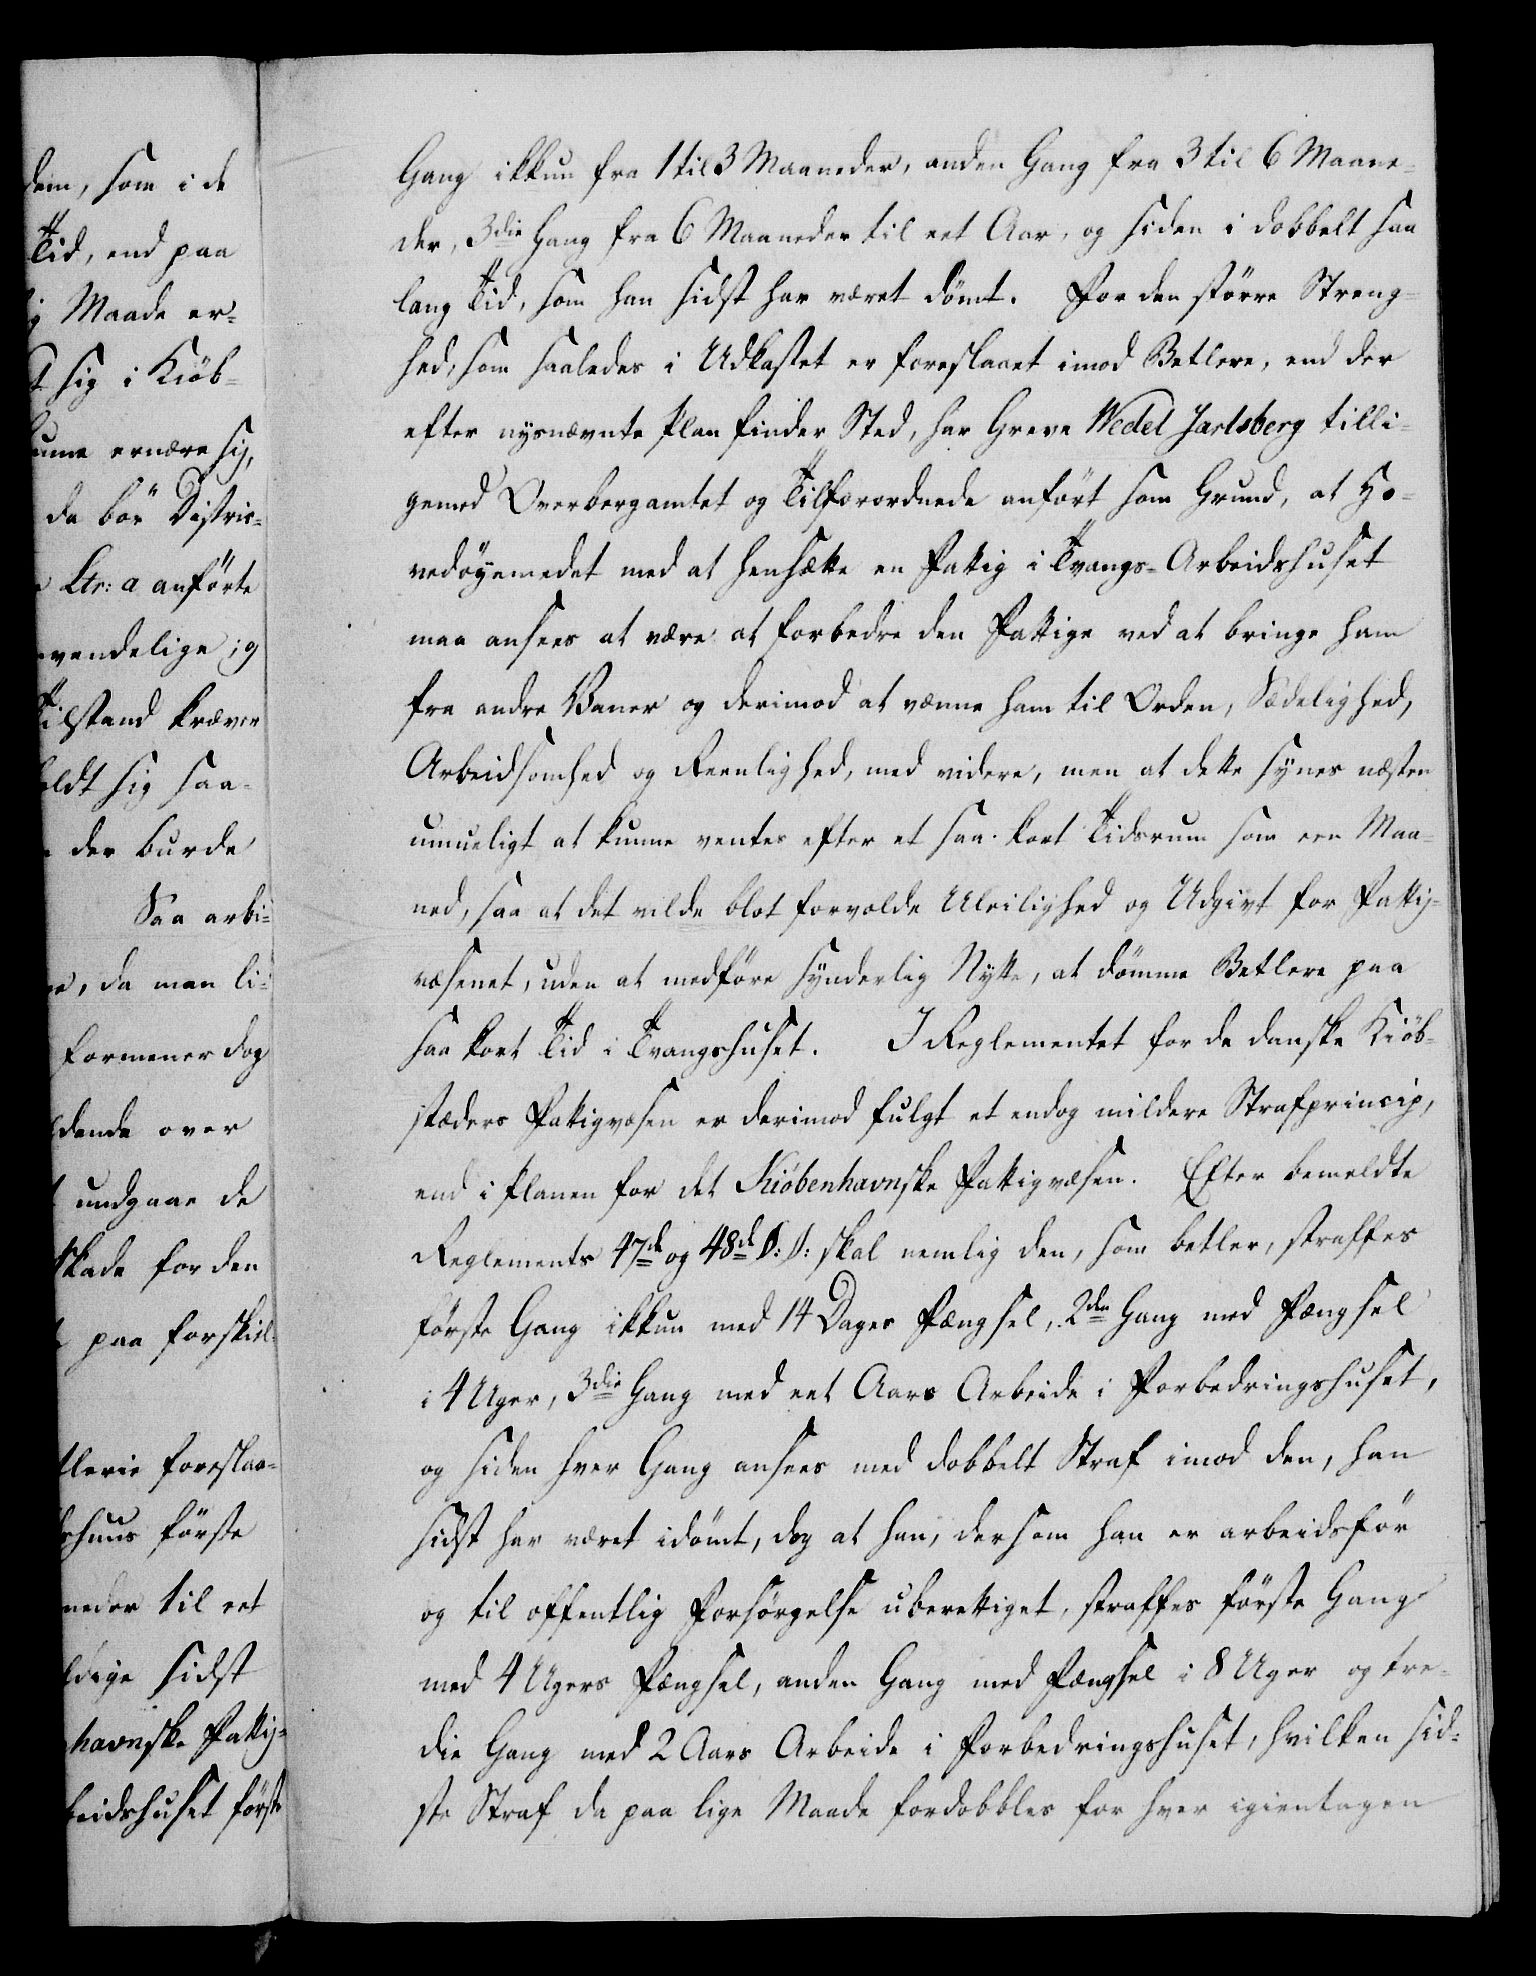 dem, som i de
Tid, end paa
Maade er-
sig i Kiöb-
ernære sig,
da bör Distric-
Ltr: a anförte
vendelige; og
Tilstand kræver
sig saa-
der burde
Saa arbi-
da man li-
formener dog
over
undgaae de
Skade for den
paa forskiel-
foreslaa-
første
til eet
sidst
havnske Fattig-
beidshuset første
Gang ikkun fra 1 til 3 Maaneder, anden Gang fra 3 til 6 Maane-
der, 3die Gang fra 6 Maaneder til eet Aar, og siden i dobbelt saa
lang Tid, som han sidst har været dömt. For den större Streng-
hed, som saaledes i Udkastet er foreslaaet imod Betlere, end der
efter nysnævnte Plan finder Sted, har Greve Wedel Jarlsberg tilli-
gemed Overbergamtet og Tilforordnede anfört som Grund, at Ho-
vedöyemedet med at hensætte en Fattig i Tvangs-Arbeidshuset
maa ansees at være at forbedre den Fattige ved at bringe ham
fra andre Vaner og derimod at vænne ham til Orden, Sædelighed,
Arbeidsomhed og Reenlighed, med videre, men at dette synes næsten
umueligt at kunne ventes efter et saa kort Tidsrum som een Maa-
ned, saa at det vilde blot forvolde Uleilighed og Udgivt for Fattig-
væsenet, uden at medföre synderlig Nytte, at dömme Betlere paa
saa kort Tid i Tvangshuset. I Reglementet for de danske Kiöb-
stæders Fattigvæsen er derimod fulgt et endog mildere Strafprincip,
end i Planen for det Kiöbenhavnske Fattigvæsen. Efter bemeldte
Reglements 47de og 48de §:§: skal nemlig den, som betler, straffes
förste Gang ikkun med 14 Dages Fængsel, 2den Gang med Fængsel
i 4 Uger, 3die Gang med eet Aars Arbeide i Forbedringshuset,
og siden hver Gang ansees med dobbelt Straf imod den, han
sidst har været idömt, dog at han, dersom han er arbeidsför
og til offentlig Forsörgelse uberettiget, straffes förste Gang
med 4 Ugers Fængsel, anden Gang med Fængsel i 8 Uger og tre-
die Gang med 2 Aars Arbeide i Forbedringshuset, hvilken sid-
ste Straf da paa lige Maade fordobbles for hver igientagen